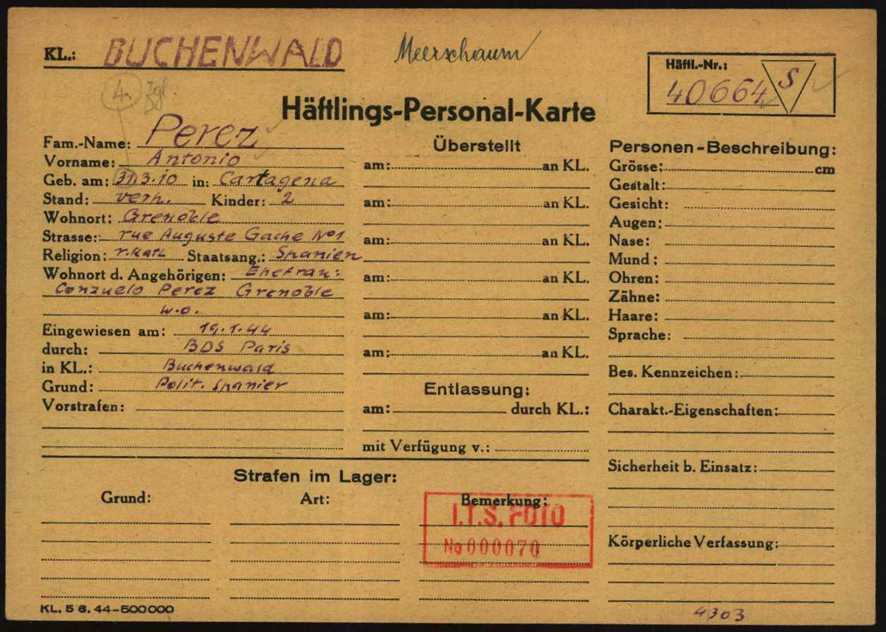 KL.: BUCHENWALD
Meerschaum
Häftl.-Nr.:
40664 S
4.
Häftlings-Personal-Karte
Fam.-Name: Perez
Vorname: Antonio
Geb. am: 31.3.10 in: Cartagena
Stand: verh. Kinder: 2
Wohnort: Grenoble
Strasse: rue Auguste Gache No1
Religion: r.kath Staatsang.: Spanien
Wohnort d. Angehörigen: Ehefrau:
Conzuelo Perez Grenoble
w.o.
Eingewiesen am: 19.1.44
durch: BDS Paris
in KL.: Buchenwald
Grund: Polit. Spanier
Vorstrafen:
Überstellt
am: an KL.
am: an KL.
am: an KL.
am: an KL.
am: an KL.
am: an KL.
Entlassung:
am: durch KL.:
mit Verfügung v.:
Personen-Beschreibung:
Grösse: cm
Gestalt:
Gesicht:
Augen:
Nase:
Mund:
Ohren:
Zähne:
Haare:
Sprache:
Bes. Kennzeichen:
Charakt.-Eigenschaften:
Sicherheit b. Einsatz:
Körperliche Verfassung:
Strafen im Lager:
Grund: Art: Bemerkung:
I.T.S. FOTO
No 000070
KL. 5 6. 44-500000
4303